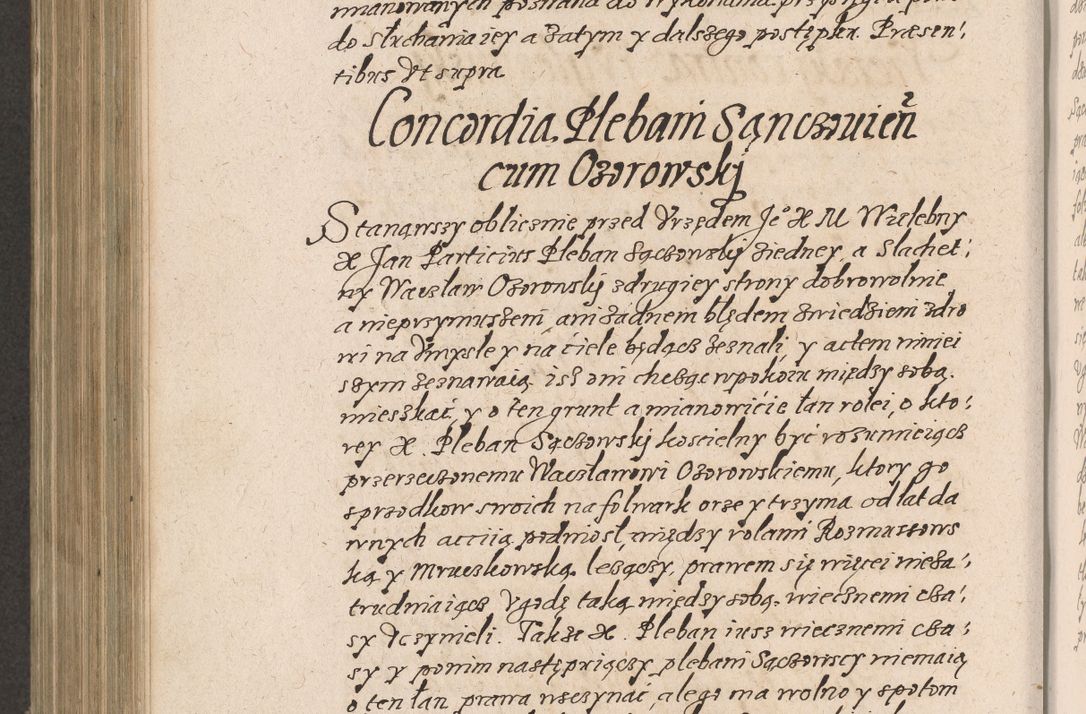 mianowanych poznana do wykonania przysięgi a
do słuchania iey a zatym y dalszego postępku. Præsen,
tibus Vt supra
Concordia. Plebani Sączovien
cum Ozorowskj
Stanąwszy oblicznie przed Vrzędem Je° X M Wielebny
X Jan Particius Pleban Sączowskj ziedney, a Slachet,
ny Waczlaw Ozorowskj zdrugiey strony dobrowolnie
a nieprzymuszeni, ani żádnem błędem zwiedzieni zdro
wi na Vmysle y ná ciele będącz zeznali, y actem niniei
szym zeznawaią. isz oni chcząc wpokoiu między sobą.
mieszkać, y o ten grunt a mianowićie łan rolei, o kto,
rey X. Pleban Sączowskj koscielny być rozumieiącz
przerzeczonemu Waczlawowi Ozorowskiemu, ktory go
zprzodkow swoich na folwark orze y trzyma. od lat da
wnych actiią podniosł, między rolami Rozmussows
ką y Mruczkowską. leżączy, prawem się więcei nieza,
trudniaiącz Vgodę taką między sobą. wiecznemi cza,
sy Vczynieli. Także X. Pleban iusz wiecznemi cza,
sy y ponim następuiączy plebani Sączowscy niemaią
o ten łan prawa wsczynać, ale go ma wolno y zpotom